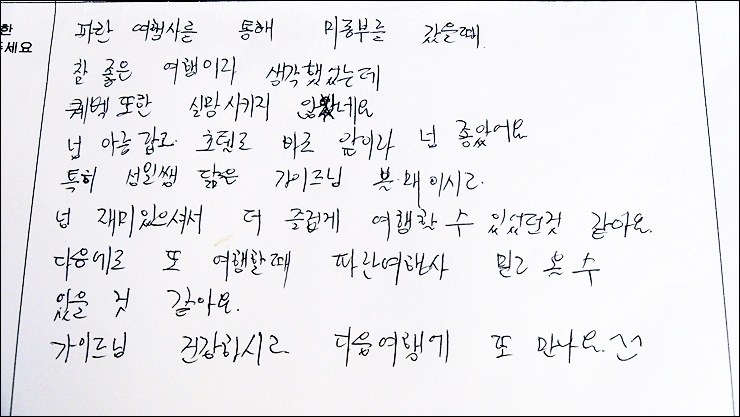 한
주세요
파란 여행사를 통해 미동부를 갔을때
참 좋은 여행이라 생각했었는데
퀘벡 또한 실망시키지 않네요
넘 아름답고 호텔도 바로 앞이라 넘 좋았어요
특히 성일쌤 닮은 가이드님 분 왜이시고
넘 재미있으셔서 더 즐겁게 여행할 수 있었던것 같아요.
다음에도 또 여행할때 파란여행사 믿고 올 수
있을 것 같아요.
가이드님 건강하시고 다음여행에 또 만나요.^^